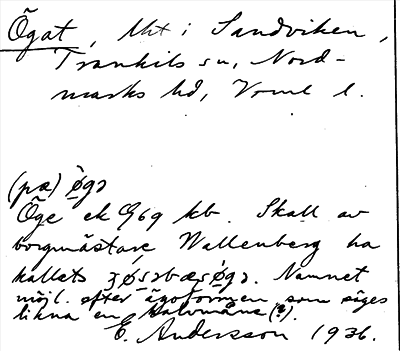 Ögat, Uht i Sandviken,
Trankils sn, Nord-
marks hd, Vrml l.
(pæ) ø̀gə
Öge ek Q69 kb. Skall av
borgmästare Wallenberg ha
kallats ø̀gə. Namnet
möjl. efter ägoformen som säges
likna en halvmåne (?).
E. Andersson 1936.